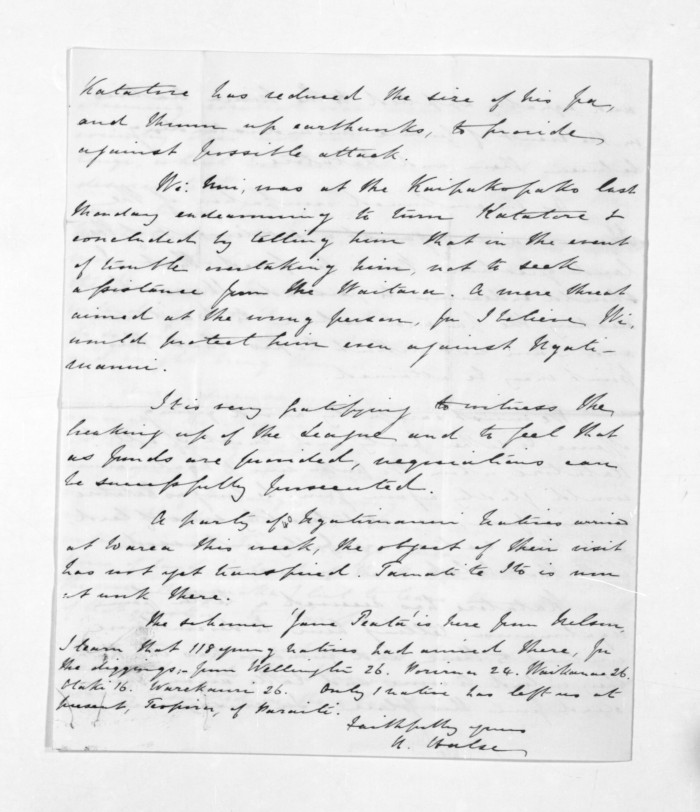 Katatore has reduced the size of his pa,
and thrown up earthworks, to provide
against possible attack.
Wi: Kini, was at the Kaipakopako last
Monday endeavouring to turn Katatore &
concluded by telling him that in the event
of trouble overtaking him, not to seek
assistance from the Waitara. A mere threat
aimed at the wrong person, for I believe Wi,
would protect him even against Ngati-
maniu.
It is very gratifying to witness the
breaking up of the League and to feel that
as funds are provided, negociations can
be successfully prosecuted.
A party of Ngatimaniu Natives arrived
at Warea this week, the object of their visit
has not yet transpired. Tamati te Ito is now
at work there.
The schooner 'Jane Peata' is here from Nelson,
I learn that 118 young natives had arrived there, for
the diggings,- from Wellington 26. Porirua 24. Waikanae 26.
Otaki 16. Warekauri 26. Only 1 native has left us at
present, of
Faithfully yours
H. Halse